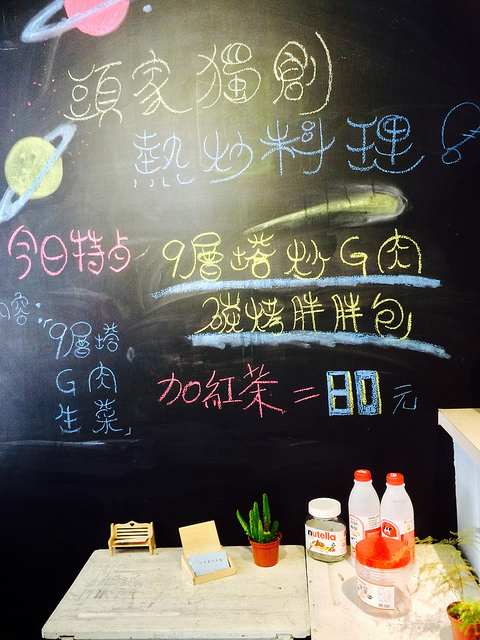 頭家獨創
熱炒料理
今日特点
9層塔炒G肉
碳烤胖胖包
內容:
9層塔
G肉
生菜」
加紅茶=80元
nutella